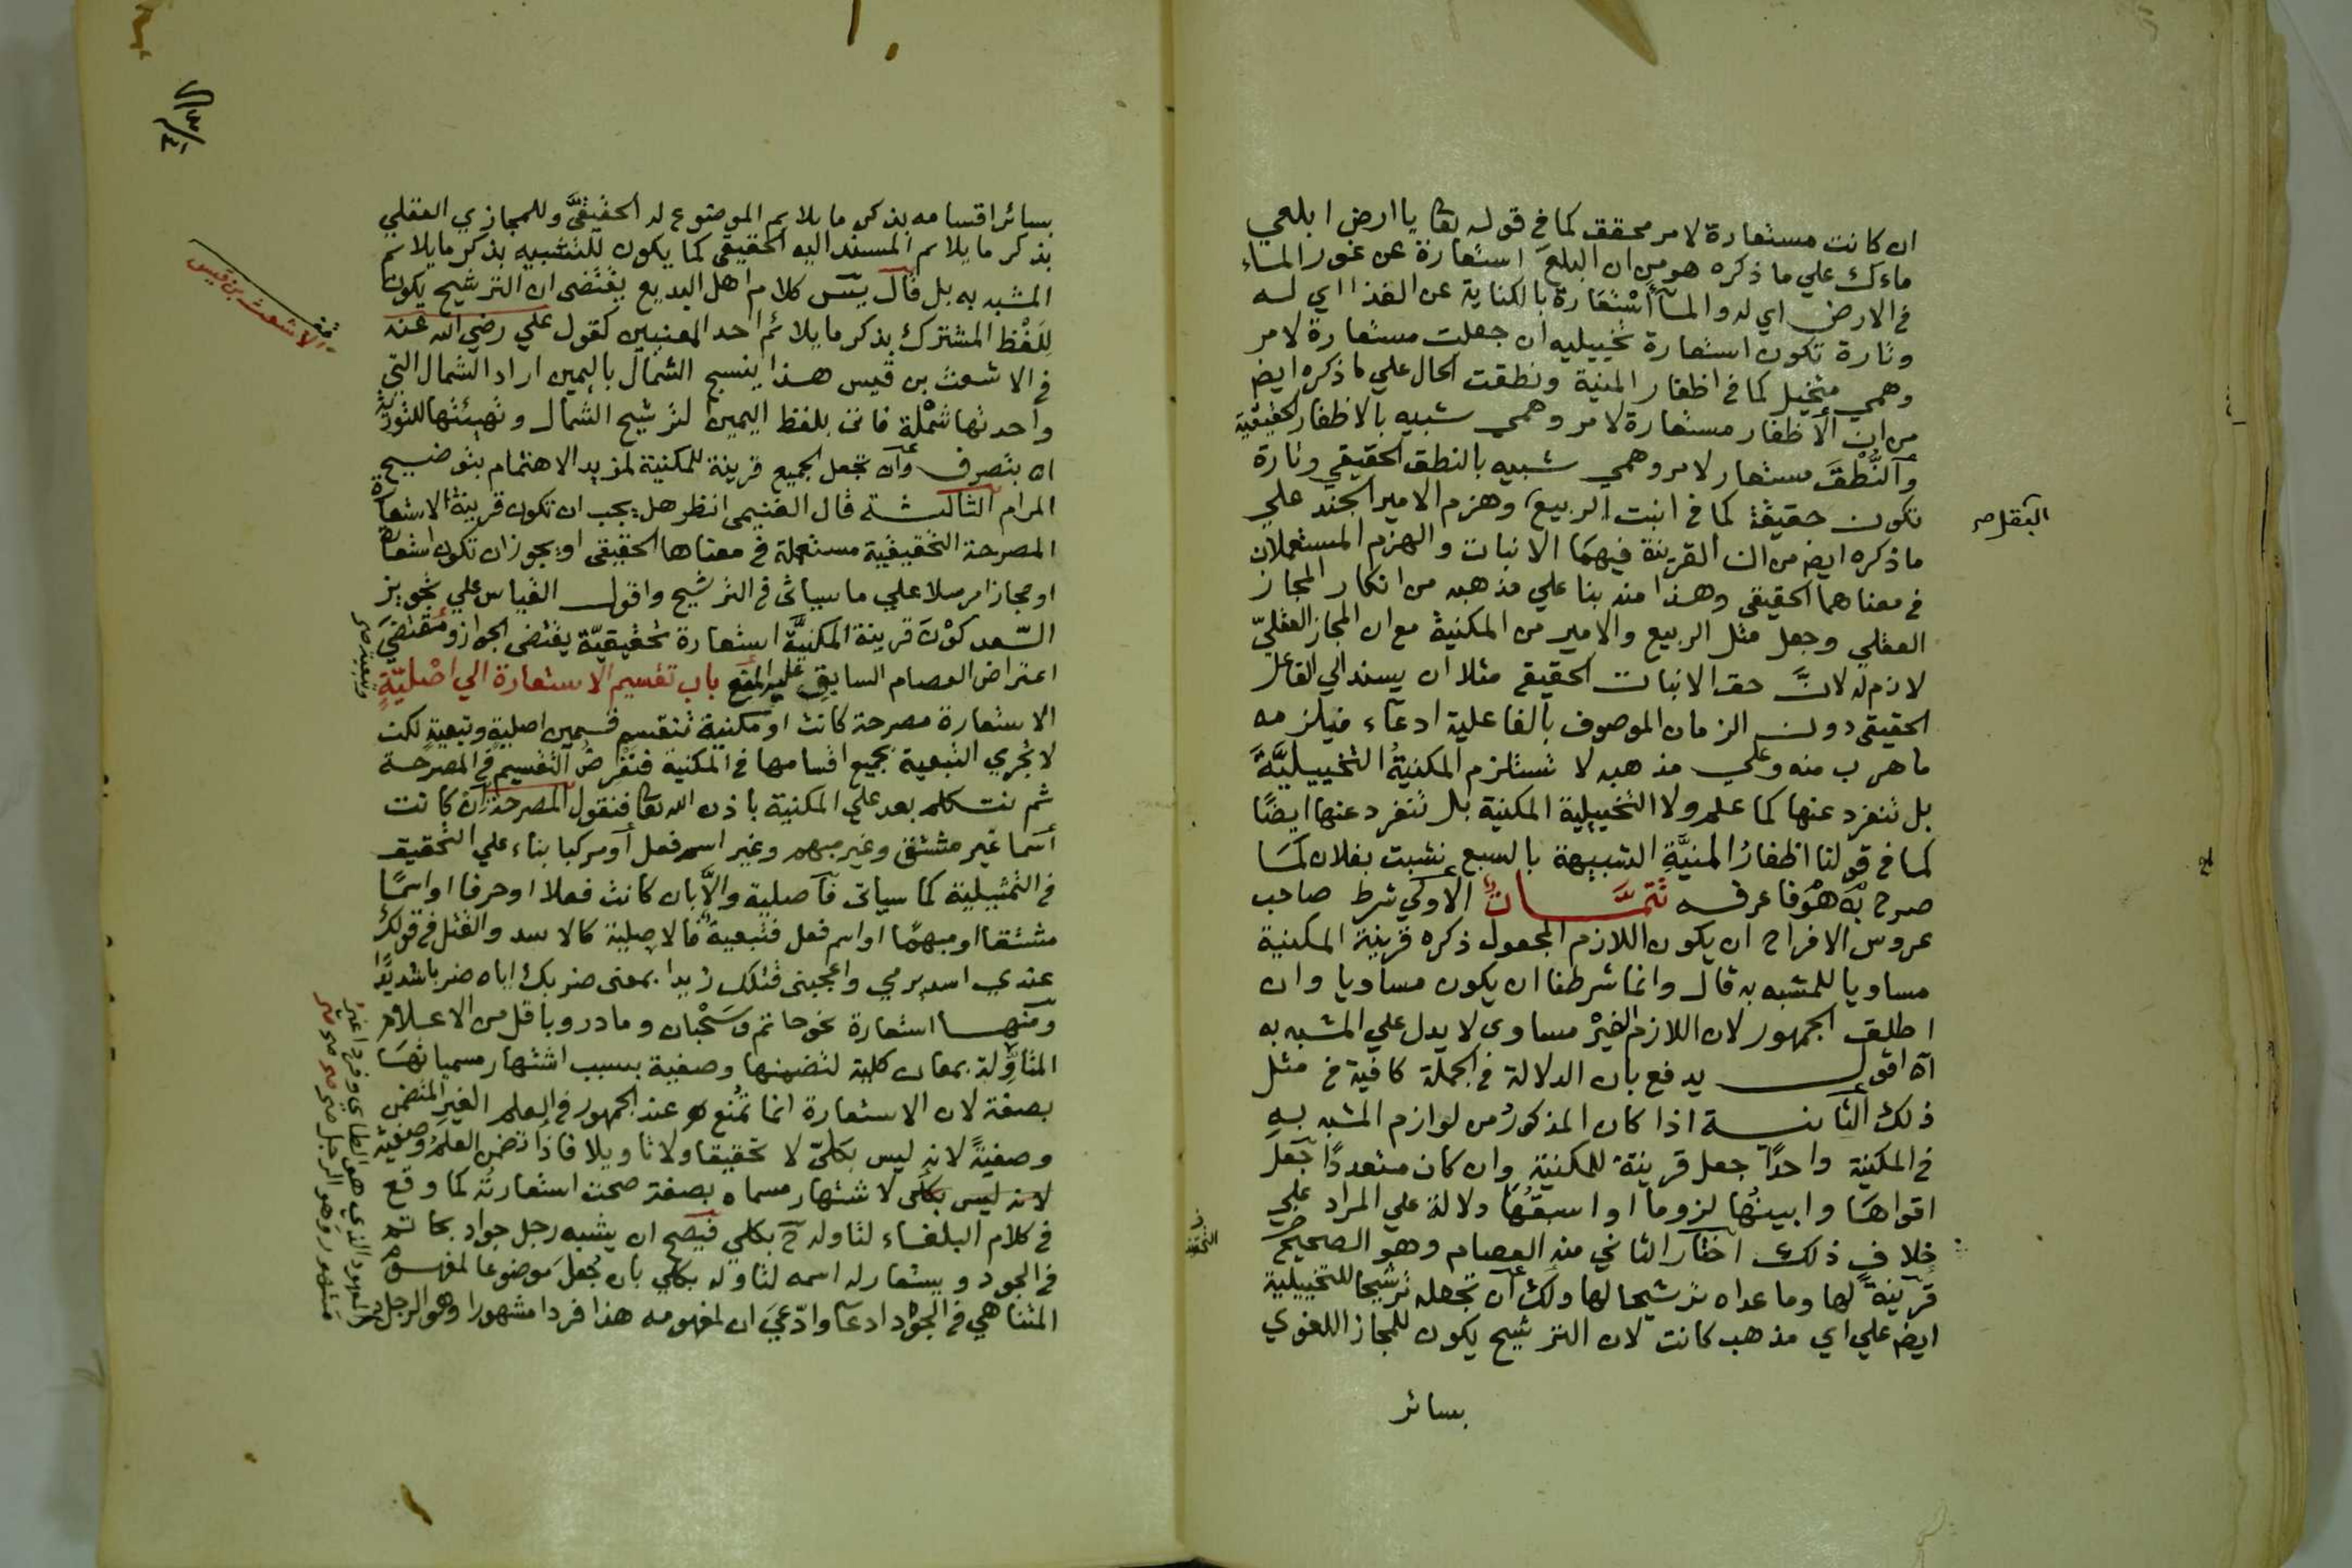 ان كانت مستعارة لامر محقق كما في قوله تعا يا ارض ابلعي
ماءك علي ما ذكره هو من ان البلعَ استعارة عن غور الماء
في الارض اي له والمآ اسْتعَارة بالكناية عن الغذا اي له
وتارة تكون استعارة تخييليه ان جعلت مستعارة لامر
وهمي متخيل كما في اظفار المنية ونطقت الحال علي ما ذكره ايض
من ان الأظفار مستعارة لامر وهمي شبيه بالاظفار الحقيقية
وآلنُّطْقَ مستعار لامر وهمي شبيه بالنطق الحقيقي وتارة
تكون حقيقة كما في انبت الربيع وهزم الامير الجند علي
ما ذكره ايض من ان القرينة فيهما الانبات والهزم المستعملان
في معناهما الحقيقي وهذا منه بنا علي مذهبه من انكار المجاز
العقلي وجعل مثل الربيع والامير من المكنية مع ان المجاز العقليّ
لازم له لانَّ حق الانبات الحقيقي مثلا ان يسند الي الفاعل
الحقيقي دون الزمان الموصوف بالفاعلية ادعاء فيلزمه
ما هرب منه وعلي مذهبه لا تستلزم المكنيةُ التخييليَّةَ
بل تنفرد عنها كما علم ولا التخييلية المكنية بل تنفرد عنها ايضًا
كما في قولنا اظفارُ المنيَّةِ الشبيهة بالسبع نشبت بفلان كمَا
صرح به هُوَ فاعرفه تَتِمَّــاتٌ الاولي شرط صاحب
عروس الافراح ان يكون اللازم المجعول ذكره قرينة المكنية
مساويا للمشبه به قال وانما شرطنا ان يكون مساويا وان
اطلق الجمهور لان اللازم الغيرْ مساوي لا يدل علي المشبه به
آه اقول يدفع بان الدلالة في الجملة كافية في مثل
ذلك الثانيــة اذا كان المذكورُ من لوازم المشبه به
في المكنية واحدًا جعل قرينة للمكنية وان كان متعددًا جعل
اقواهَا وابينُها لزوما او اسبقُهَا دلالة علي المراد علي
خلافٍ ذلك اختار الثاني منه العصام وهو الصحيح
قرينةً لها وما عداه ترشيحا لها ولك ان تجعله ترشيحا للتخييلية
ايض علي اي مذهب كانت لان الترشيح يكون للمجاز اللغوي
بسائر
بسائر اقسامه بذكر ما يلايم الموضوع له الحقيقيَّ وللمجازي العقلي
بذكر ما يلايم المسند اليه الحقيقي كما يكون للتشبيه بذكر ما يلايم
المشبه به بل قال يسٓ كلام اهل البديع يقتضى ان الترشيح يكون
لِلَفْظ المشترك بذكر ما يلائم احد المعنيين كقول علي رضي الله عنه
في الاشعث بن قيس هذا ينسج الشمال باليمين اراد الشمال التي
واحدتها شمْلة فاتى بلفظ اليمين لترشيح الشمال وتهيئتها للتورية
اه بتصرف وآن تجعل الجميع قرينة للمكنية لمزيد الاهتمام بتوضيح
المرام الثالثــة قال الغنيمى انظر هل يجب ان تكون قرينة الاستعارة
المصرحة التحقيقية مستعملة في معناها الحقيقي او يجوز ان تكون استعارة
او مجازا مرسلا علي ما سياتى في الترشيح واقول القياس علي تجويز
السّعد كوْنَ قرينة المكنيَّة استعارة تحقيقيّة يقتضى الجواز ومُقتضَى
اعتراض العصام السابق عليه المنع باب تقسيم الاستعارة الي اصْليّةٍ
وتبعية صح
الاستعارة مصرحة كانت او مكنية تنقسم قسمين اصلية وتبعية لكن
لا تجري التبعية بجميع اقسامها في المكنية فنفرضُ التقسيم في المصرحة
ثم نتكلم بعد علي المكنية باذن الله تعا فنقول المصرحة ان كانت
اسما غير مشتق وغير مبهم وغير اسم فعل او مركبا بناء علي التحقيق
في التمثيلية كما سياتى فآصلية والاَّ بان كانت فعلا او حرفا او اسمًا
مشتقا او مبهمًا او اسم فعل فتبعية فالاصلية كالاسد والقتل في قولك
عندي اسد يرمي واعجبنى قتلك زيدا بمعنى ضربك اياه ضربا شديدًا
ومنهــا استعارة نحو حاتم وسَحْبان ومادر وباقل من الاعلام
المتاوّلة بمعان كلية لتضمنها وصفية بسبب اشتهار مسمياتهَا
بصفة لان الاستعارة انما تُمنع عند الجمهور في العلم الغير المتضمن
وصفيةً لانه ليس بكليّ لا تحقيقا ولا تاويلا فاذا تضمن العلمُ وصفية
لانه ليس بكلى لاشتهار مسماه بصفة صحت استعارتُه كما وقع
في كلام البلغاء لتاوله ح بكلي فيَصح ان يشبه رجل جواد بحاتم
في الجود ويستعار له اسمه لتاوله بكلي بان جُعلَ موضوعا لمفهوم
المتناهي في الجود ادعآ وادّعيَ ان لمفهومه هذا فردا مشهورا وهو الرجل
الاشعث بن قيس